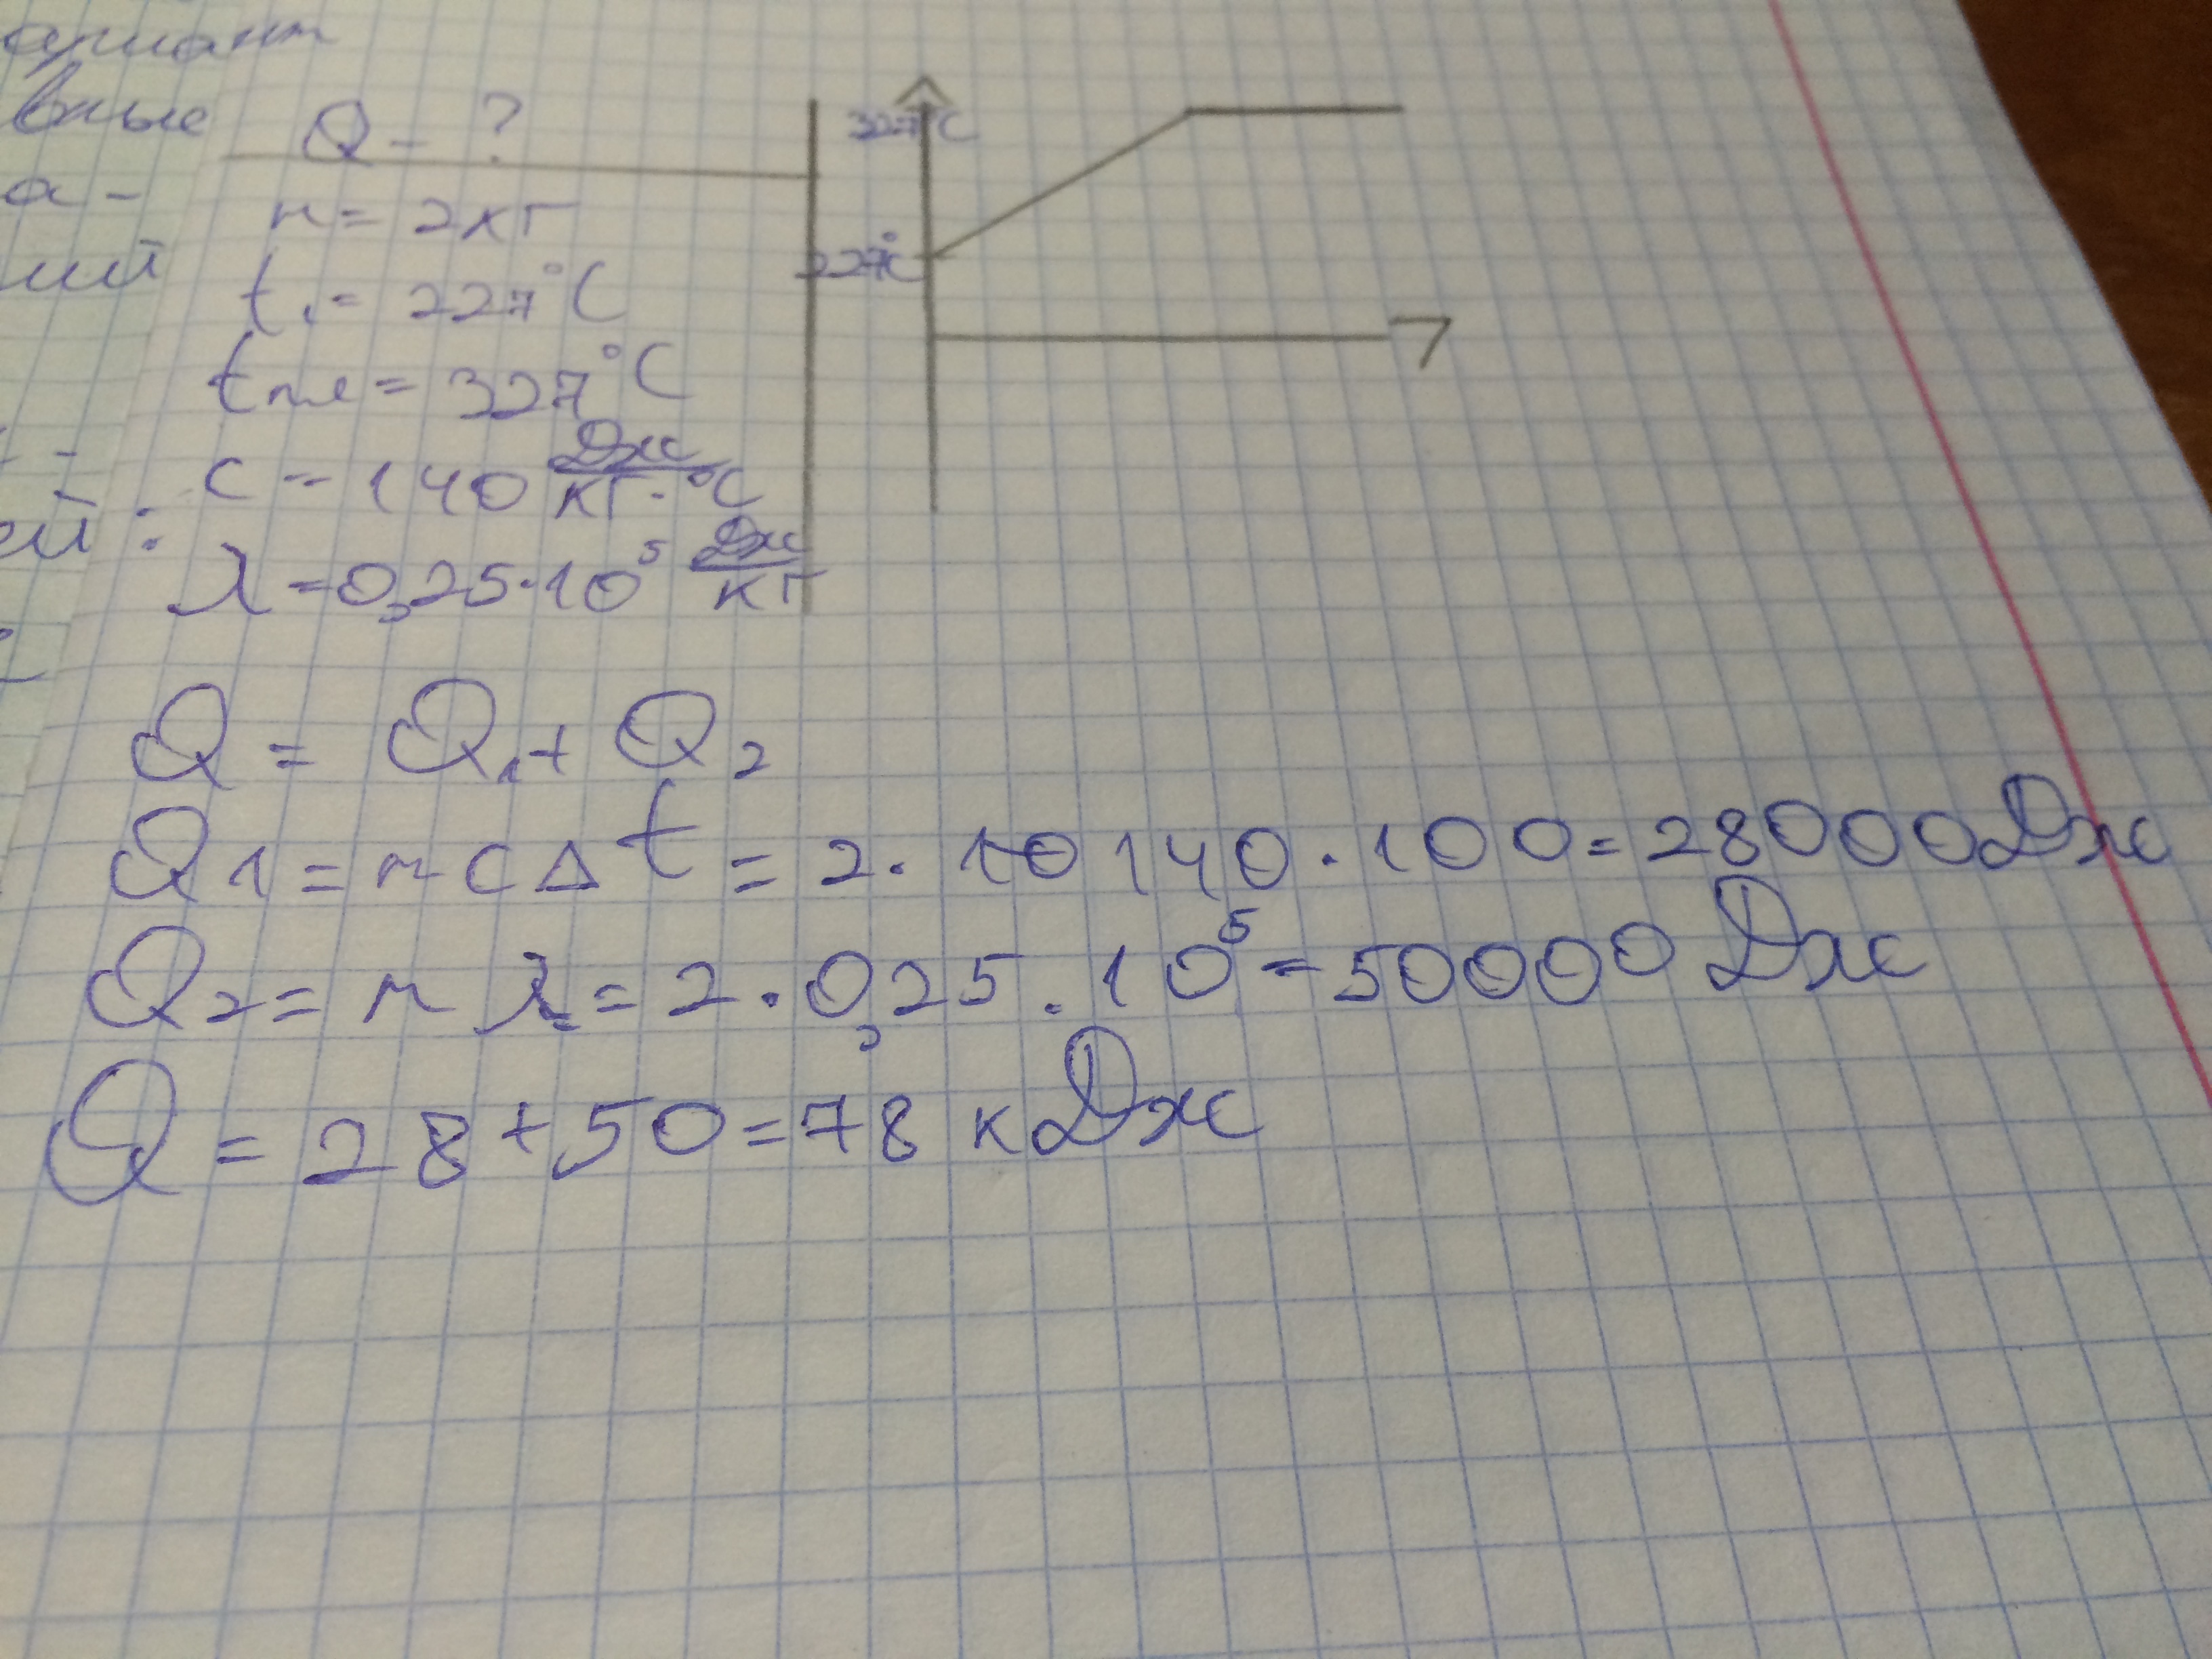 Q - ?
m = 2кг
t₁ = 227°C
tпл = 327°C
c = 140 Дж/кг·°C
λ = 0,25·10⁵ Дж/кг
327°C
227°C
Q = Q₁ + Q₂
Q1 = m c Δt = 2 · 140 · 100 = 28000 Дж
Q2 = m λ = 2 · 0,25 · 10⁵ = 50000 Дж
Q = 28 + 50 = 78 кДж